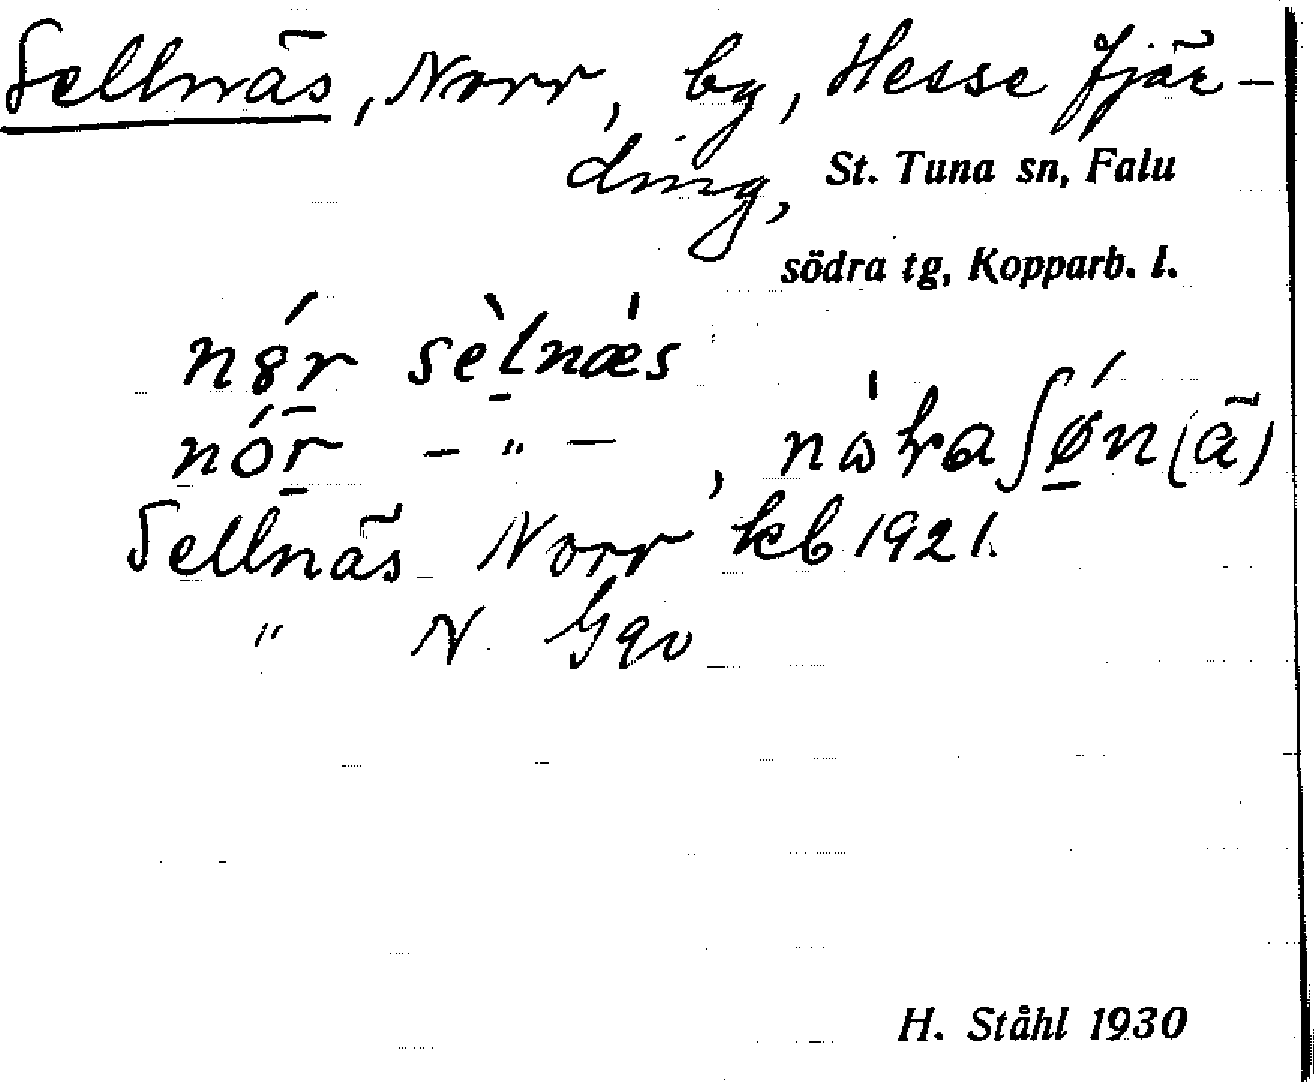 Sellnäs, Norr, by, Hesse fjär-
ding, St. Tuna sn, Falu
södra tg, Kopparb. l.
nȣ́r sèlnǽs
nór̄ – " – , nòra ʃǿn (ā)
Sellnäs Norr kb 1921.
" N. Gqv
H. Ståhl 1930